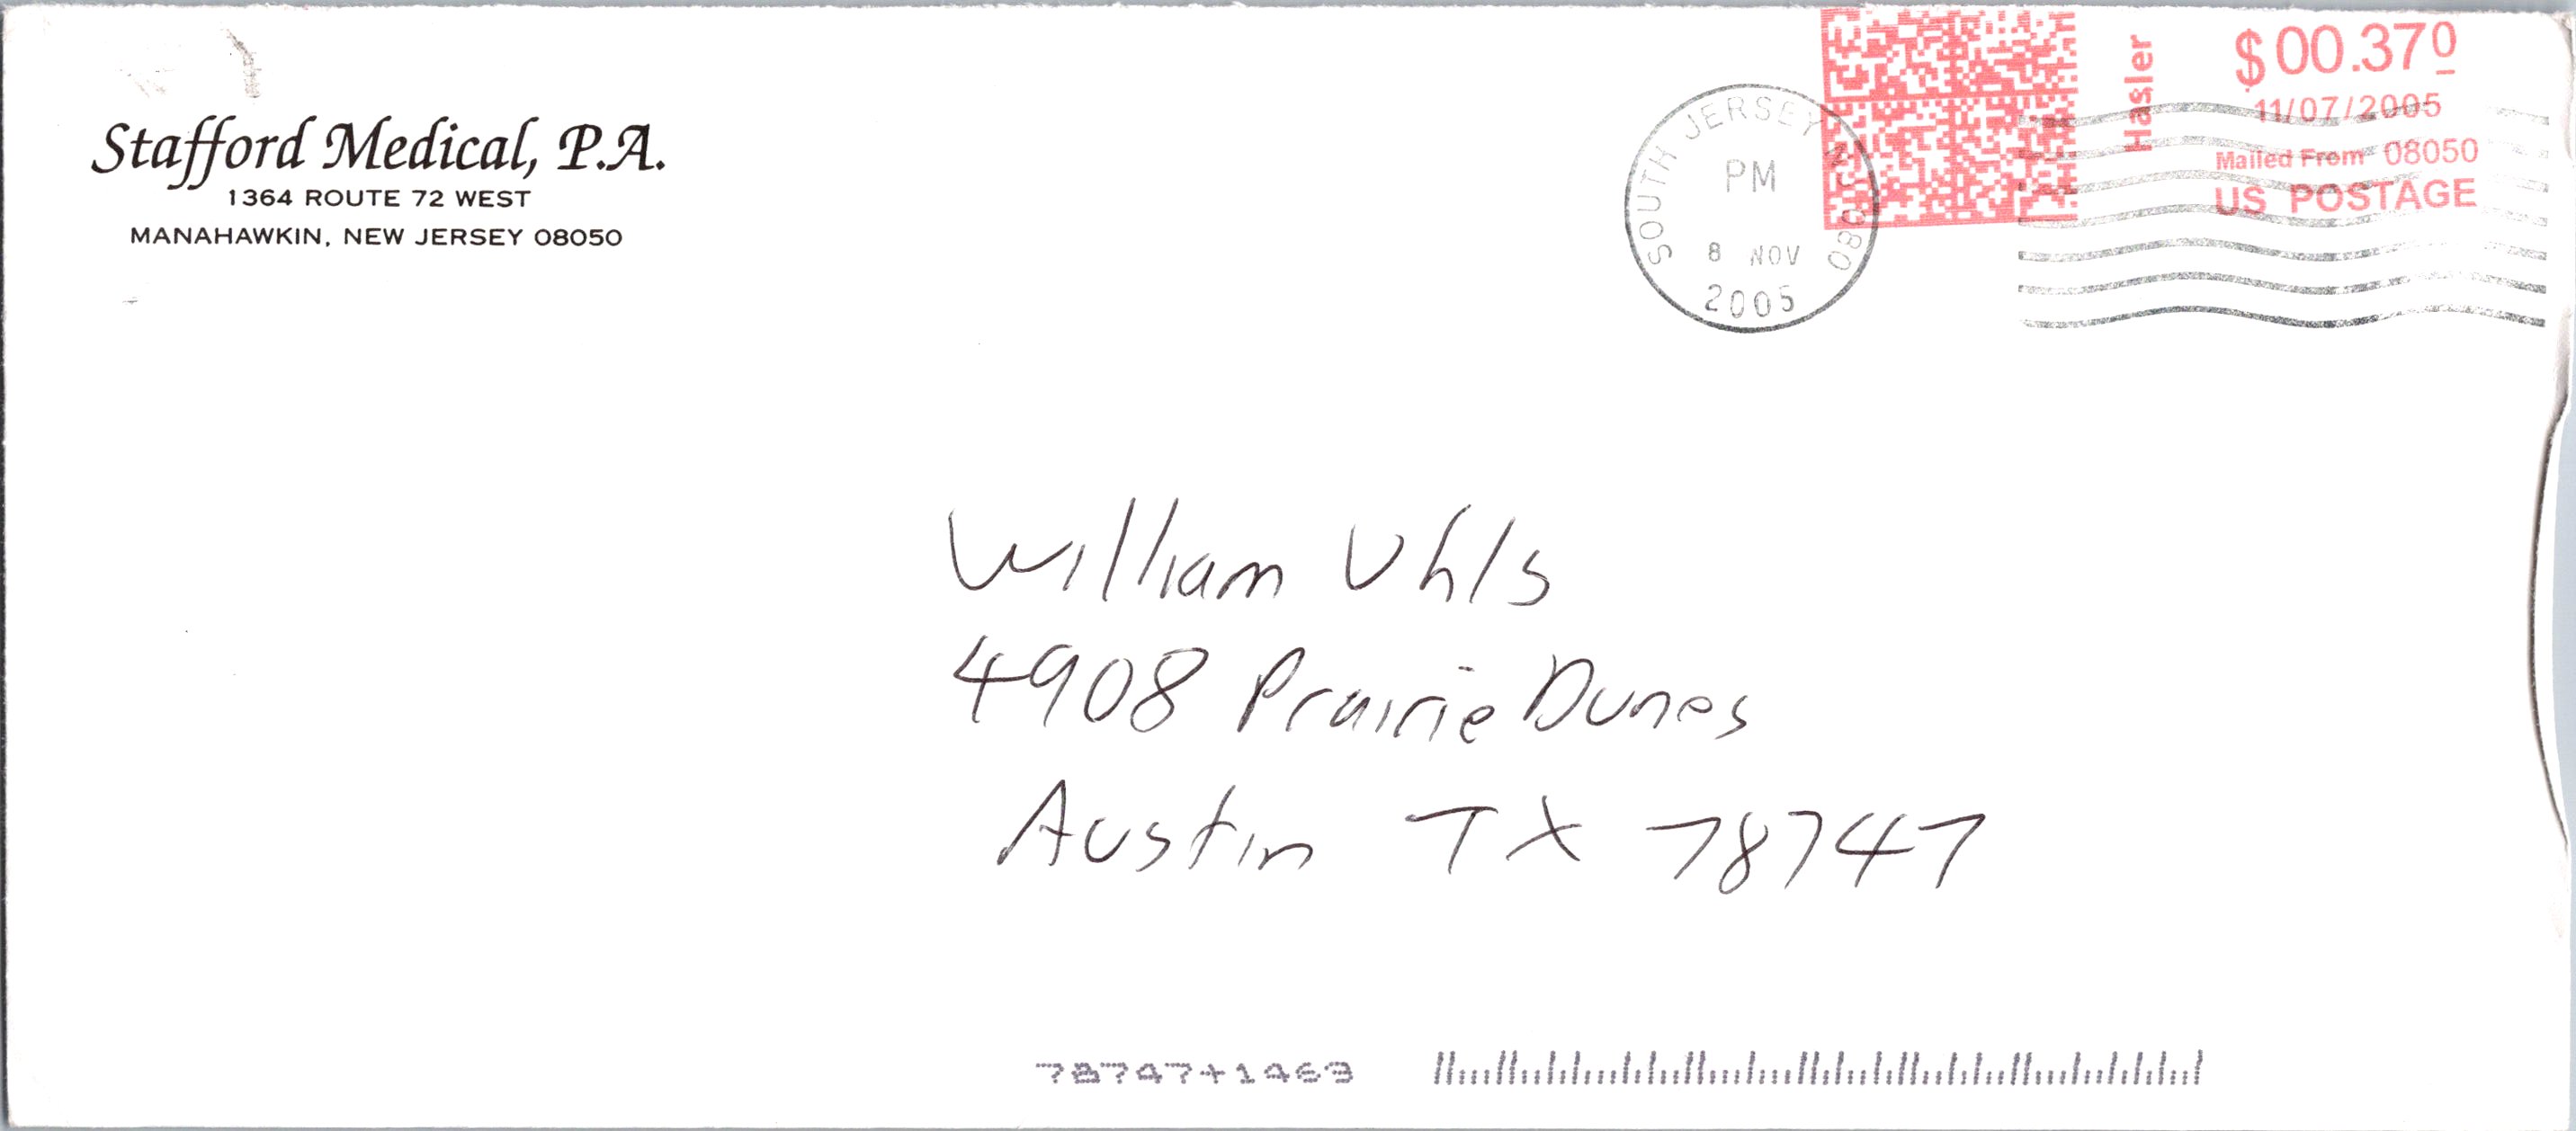 Stafford Medical, P.A.
1364 ROUTE 72 WEST
MANAHAWKIN, NEW JERSEY 08050
SOUTH JERSEY NJ 080
PM
8 NOV
2005
Hasler
$00.370
11/07/2005
Mailed From 08050
US POSTAGE
William Uhls
4908 Prairie Dunes
Austin TX 78747
78747+1463